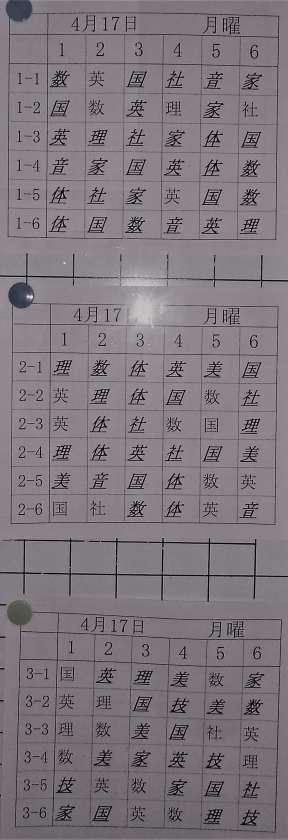 4月17日 月曜
1 2 3 4 5 6
1-1 数 英 国 社 音 家
1-2 国 数 英 理 家 社
1-3 英 理 社 家 体 国
1-4 音 家 国 英 体 数
1-5 体 社 家 英 国 数
1-6 体 国 数 音 英 理
4月17 月曜
1 2 3 4 5 6
2-1 理 数 体 英 美 国
2-2 英 理 体 国 数 社
2-3 英 体 社 数 国 理
2-4 理 体 英 社 国 美
2-5 美 音 国 体 数 英
2-6 国 社 数 体 英 音
4月17日 月曜
1 2 3 4 5 6
3-1 国 英 理 美 数 家
3-2 英 理 国 技 美 数
3-3 理 数 美 国 社 英
3-4 数 美 家 英 技 理
3-5 技 英 数 家 国 社
3-6 家 国 英 数 理 技